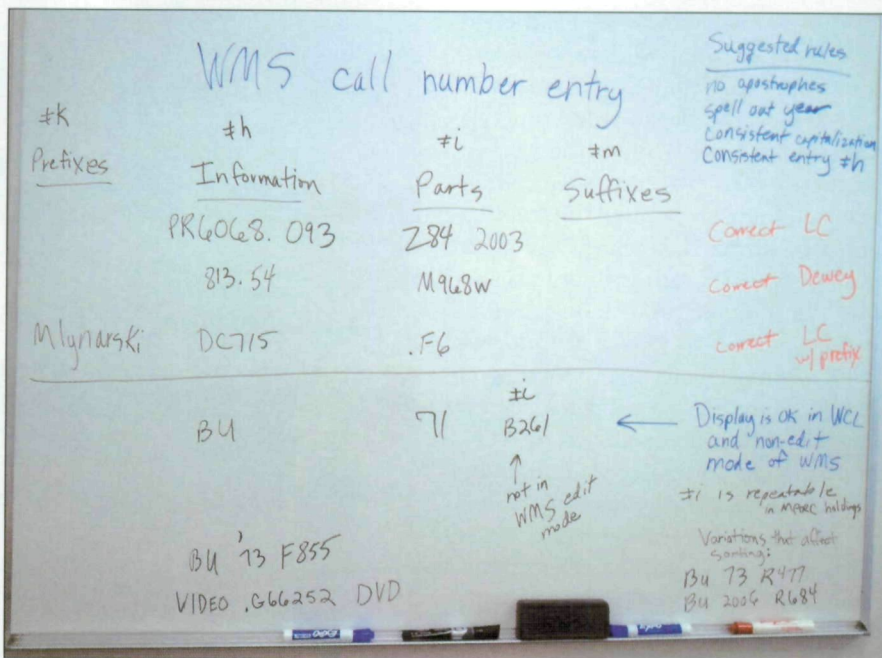 WMS call number entry
Suggested rules
no apostrophes
spell out year
Consistent capitalization
Consistent entry ‡h
‡k
Prefixes
‡h
Information
‡i
Parts
‡m
Suffixes
PR6068. 093 Z84 2003 Correct LC
813.54 M968w Correct Dewey
Mlynarski DC715 .F6 correct LC
w/prefix
‡i
BU 71 B261 ← Display is OK in WCL
and non-edit
mode of WMS
↑
not in
WMS edit
mode
‡i is repeatable
in MARC holdings
BU '73 F855
VIDEO .G66252 DVD
Variations that affect
sorting:
Bu 73 R477
BU 2006 R684
EXPO